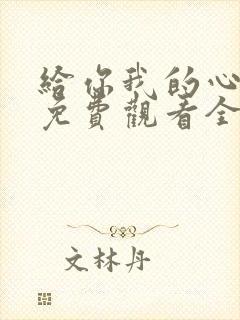 給你我的心
免費觀看全
文林丹